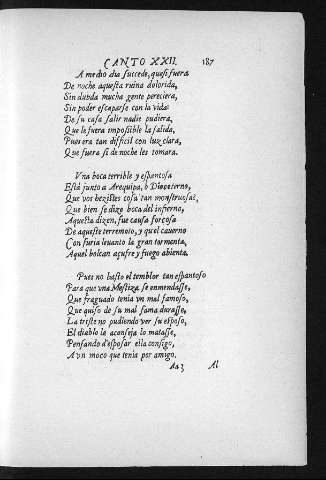 CANTO XXII. 187
A medio dia succede, que si fuera
De noche aquesta ruina dolorida,
Sin dubda mucha gente pereciera,
Sin poder escaparse con la vida:
De su casa salir nadie pudiera,
Que le fuera impossible la salida,
Pues era tan difficil con luz clara,
Que fuera si de noche les tomara.
Vna boca terrible y espantosa
Està junto a Arequipa, ò Dios eterno,
Que vos hezistes cosa tan monstruosa,
Que bien se dize boca del infierno,
Aquesta dizen, fue causa forçosa
De aqueste terremoto, y quel cauerno
Con furia leuanto la gran tormenta,
Aquel bolcan açufre y fuego abienta.
Pues no basto el temblor tan espantoso
Para que vna Mestiza se enmendasse,
Que fraguado tenia vn mal famoso,
Que quiso de su mal fama durasse,
La triste no pudiendo ver su esposo,
El diablo la aconseja lo matasse,
Pensando desposar ella consigo,
A vn moço que tenia por amigo.
Aa 3 Al